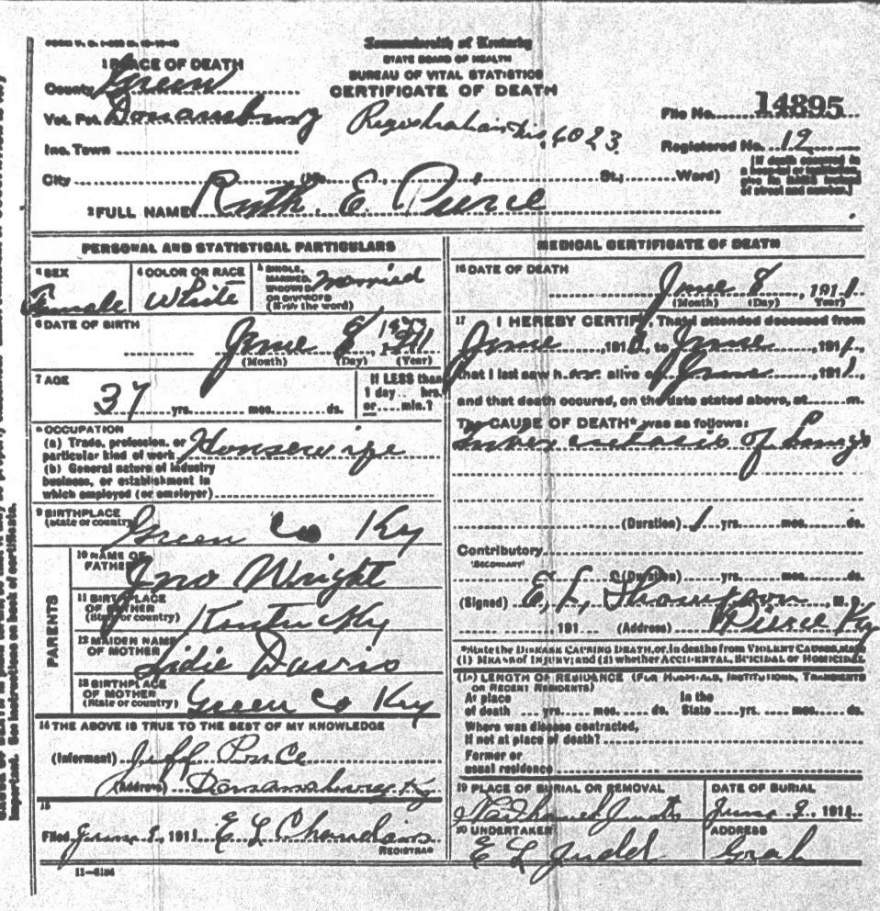 Commonwealth of Kentucky
STATE BOARD OF HEALTH
BUREAU OF VITAL STATISTICS
CERTIFICATE OF DEATH
1 PLACE OF DEATH
County Green
Vot. Pct. Donansburg
Registration Dis. 4023
File No. 14895
Inc. Town
Registered No. 19
City No. St.; Ward)
[If death occurred in a hospital or institution, give its NAME instead of street and number.]
2 FULL NAME Ruth E Pierce
PERSONAL AND STATISTICAL PARTICULARS
3 SEX Female
4 COLOR OR RACE White
5 SINGLE, MARRIED, WIDOWED OR DIVORCED (Write the word) Married
6 DATE OF BIRTH June 8
(Month) (Day) (Year)
7 AGE 37 yrs. mos. ds.
If LESS than 1 day hrs. or min.?
8 OCCUPATION
(a) Trade, profession, or particular kind of work Housewife
(b) General nature of industry
business, or establishment in
which employed (or employer)
9 BIRTHPLACE
(State or country) Green Co Ky
PARENTS
10 NAME OF FATHER Jno Wright
11 BIRTHPLACE OF FATHER (State or country) Kentucky
12 MAIDEN NAME OF MOTHER Lidie Davis
13 BIRTHPLACE OF MOTHER (State or country) Green Co Ky
14 THE ABOVE IS TRUE TO THE BEST OF MY KNOWLEDGE
(Informant) Jeff
(Address) Donansburg Ky
15
Filed June 1911 E L
REGISTRAR
11-5184
MEDICAL CERTIFICATE OF DEATH
16 DATE OF DEATH
June 8, 1911
(Month) (Day) Year)
17 I HEREBY CERTIFY, That I attended deceased from
June, 191, to June, 1911,
that I last saw her alive on June, 1911,
and that death occured, on the date stated above, at m.
The CAUSE OF DEATH* was as follows:
of Lungs
(Duration) 1 yrs. mos. ds.
Contributory
(SECONDARY)
(Duration) yrs. mos. ds.
(Signed) E. L. Thompson, M.D.
191 (Address) Pierce Ky
*State the DISEASE CAUSING DEATH, or, in deaths from VIOLENT CAUSES, state
(1) MEANS of INJURY; and (2) whether ACCIDENTAL, SUICIDAL or HOMICIDAL.
LENGTH OF RESIDENCE (FOR HOSPITALS, INSTITUTIONS, TRANSIENTS
OR RECENT RESIDENTS)
At place of death yrs. mos. ds. In the State yrs. mos. ds.
Where was disease contracted,
if not at place of death?
Former or
usual residence
19 PLACE OF BURIAL OR REMOVAL
DATE OF BURIAL
June 9, 1911
20 UNDERTAKER
E L Judd
ADDRESS
important. See instructions on back of certificate.